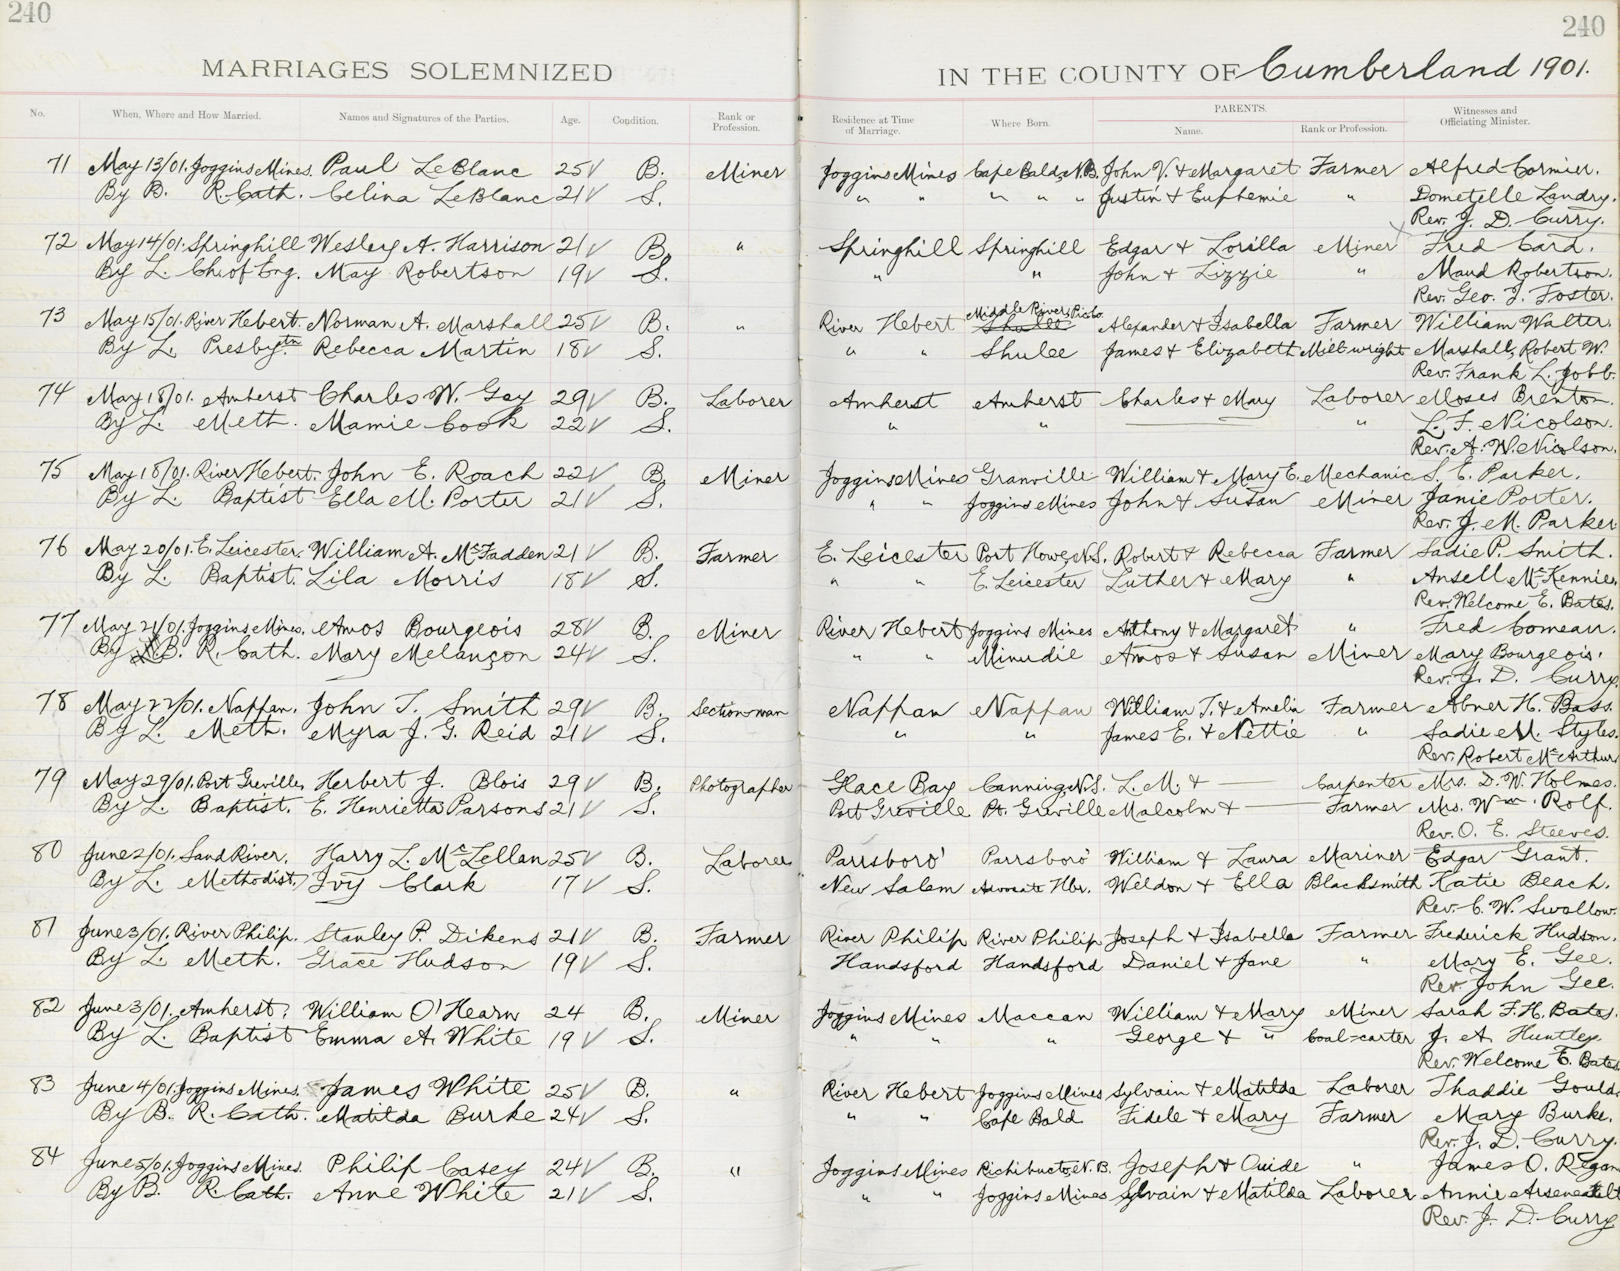 240 240
MARRIAGES SOLEMNIZED IN THE COUNTY OF Cumberland 1901.
No. When, Where and How Married. Names and Signatures of the Parties. Age. Condition. Rank or Profession. Residence at Time of Marriage. Where Born. PARENTS. Name. Rank or Profession. Witnesses and Officiating Minister.
71 May 13/01. Joggins Mines. Paul LeBlanc 25 ✓ B. Miner Joggins Mines Cape Bald, N.B. John V. + Margaret Farmer Alfred Cormier.
By B. R. Cath. Celina LeBlanc 21 ✓ S. " " " " " Justin + Euphemie " Dometelle Landry.
Rev. J. D. Curry.
72 May 14/01. Springhill Wesley A. Harrison 21 ✓ B. " Springhill Springhill Edgar + Lorilla Miner Fred Card.
By L. Ch. of Eng. May Robertson 19 ✓ S. " " John + Lizzie " Maud Robertson.
Rev. Geo. J. Foster.
73 May 15/01. River Hebert. Norman A. Marshall 25 ✓ B. " River Hebert Middle River, Pictou Shulee Alexander + Isabella Farmer William Walter.
By L. Presbytn. Rebecca Martin 18 ✓ S. " " Shulee James + Elizabeth Mill-wright Marshall, Robert W.
Rev. Frank L. Jobb.
74 May 18/01. Amherst Charles W. Gay 29 ✓ B. Laborer Amherst Amherst Charles + Mary Laborer Moses Brenton.
By L. Meth. Mamie Cook 22 ✓ S. " " " L. F. Nicolson.
Rev. A. W. Nicolson.
75 May 18/01. River Hebert. John E. Roach 22 ✓ B. Miner Joggins Mines Granville William + Mary E. Mechanic S. E. Parker.
By L. Baptist Ella M. Porter 21 ✓ S. " " Joggins Mines John + Susan Miner Janie Porter.
Rev. J. M. Parker
76 May 20/01. E. Leicester. William A. McFadden 21 ✓ B. Farmer E. Leicester Port Howe, N.S. Robert + Rebecca Farmer Sadie P. Smith.
By L. Baptist. Lila Morris 18 ✓ S. " " E. Leicester Luther + Mary " Ansell McKennie.
Rev. Welcome E. Bates.
77 May 21/01. Joggins Mines. Amos Bourgeois 28 ✓ B. Miner River Hebert Joggins Mines Anthony + Margaret " Fred Comeau.
By B. R. Cath. Mary Melançon 24 ✓ S. " " Minudie Amos + Susan Miner Mary Bourgeois.
Rev. J. D. Curry
78 May 22/01. Nappan. John T. Smith 29 ✓ B. Section-man Nappan Nappan William T. + Amelia Farmer Abner H. Bass.
By L. Meth. Myra J. G. Reid 21 ✓ S. " " James E. + Nettie " Sadie M. Styles.
Rev. Robert McArthur
79 May 29/01. Port Greville, Herbert J. Blois 29 ✓ B. Photographer Glace Bay Canning, N.S. L. M. + — Carpenter Mrs. D. W. Holmes.
By L. Baptist. E. Henrietta Parsons 21 ✓ S. Port Greville Pt. Greville Malcolm + — Farmer Mrs. Wm. Rolf.
Rev. O. E. Steeves.
80 June 2/01. Sand River. Harry L. McLellan 25 ✓ B. Laborer Parrsboro' Parrsboro' William + Laura Mariner Edgar Grant.
By L. Methodist, Ivy Clark 17 ✓ S. New Salem Advocate Hbr. Weldon + Ella Blacksmith Katie Beach.
Rev. C. W. Swallow.
81 June 3/01. River Philip. Stanley P. Dikens 21 ✓ B. Farmer River Philip River Philip Joseph + Isabella Farmer Frederick Hudson.
By L. Meth. Grace Hudson 19 ✓ S. Handsford Handsford Daniel + Jane " Mary E. Gee.
Rev. John Gee.
82 June 3/01. Amherst, William O'Hearn 24 B. Miner Joggins Mines Maccan William + Mary Miner Sarah F. H. Bates.
By L. Baptist Emma A. White 19 ✓ S. " " " George + " Coal-carter J. A. Huntley
Rev. Welcome E. Bates.
83 June 4/01. Joggins Mines. James White 25 ✓ B. " River Hebert Joggins Mines Sylvain + Matilda Laborer Thaddie Gould.
By B. R. Cath. Matilda Burke 24 ✓ S. " " Cape Bald Fidele + Mary Farmer Mary Burke.
Rev. J. D. Curry.
84 June 5/01. Joggins Mines. Philip Casey 24 ✓ B. " Joggins Mines Richibucto, N.B. Joseph + Ouide " James O. Regan
By B. R. Cath. Anne White 21 ✓ S. " " Joggins Mines Sylvain + Matilda Laborer Annie Arseneault
Rev. J. D. Curry